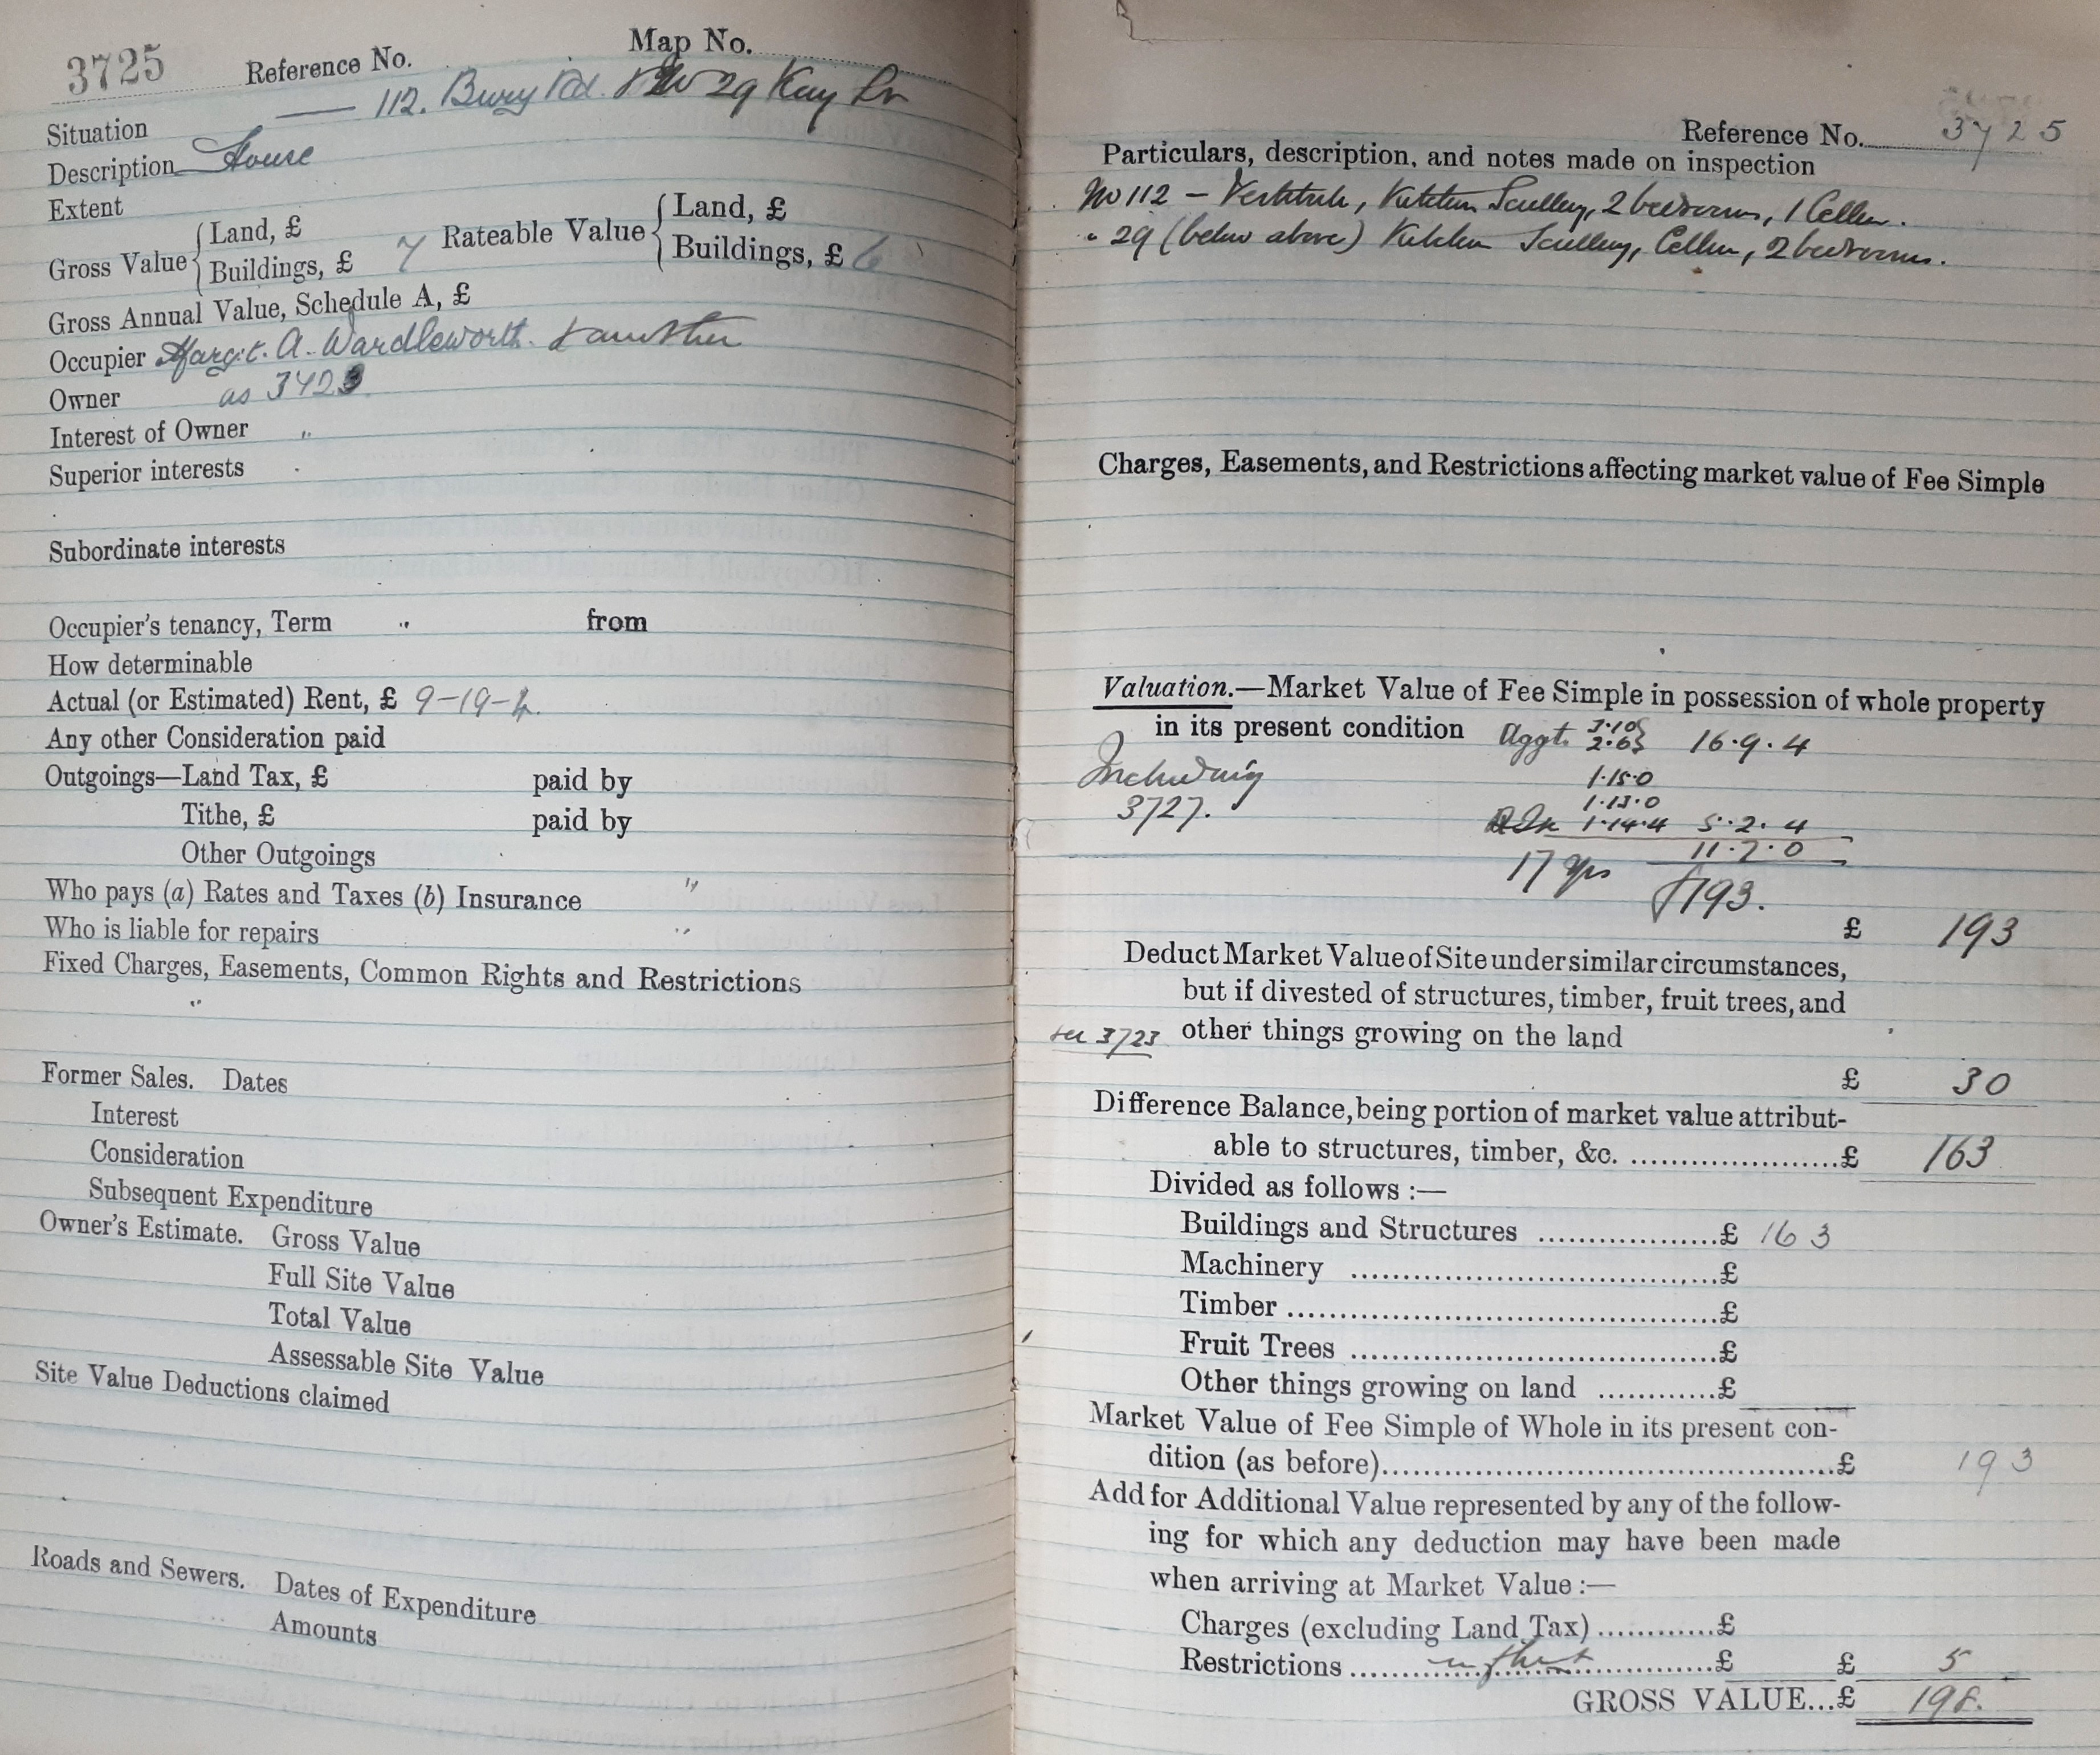 3725
Reference No. Map No.
Situation 112. Bury Rd. & 29 Kay Ln
Description House
Extent
Gross Value { Land, £
Buildings, £ 7 Rateable Value { Land, £
Buildings, £ 6
Gross Annual Value, Schedule A, £
Occupier Margt. A. Wardleworth. & another
Owner as 3723
Interest of Owner "
Superior interests
Subordinate interests
Occupier's tenancy, Term " from
How determinable
Actual (or Estimated) Rent, £ 9-19-4.
Any other Consideration paid
Outgoings—Land Tax, £ paid by
Tithe, £ paid by
Other Outgoings
Who pays (a) Rates and Taxes (b) Insurance "
Who is liable for repairs "
Fixed Charges, Easements, Common Rights and Restrictions
"
Former Sales. Dates
Interest
Consideration
Subsequent Expenditure
Owner's Estimate. Gross Value
Full Site Value
Total Value
Assessable Site Value
Site Value Deductions claimed
Roads and Sewers. Dates of Expenditure
Amounts
Reference No. 3725
Particulars, description, and notes made on inspection
No 112 – Vestibule, Kitchen Scullery, 2 bedrooms, 1 Cellar.
" 29 (below above) Kitchen Scullery, Cellar, 2 bedrooms.
Charges, Easements, and Restrictions affecting market value of Fee Simple
Valuation.—Market Value of Fee Simple in possession of whole property
in its present condition Aggt. 3.10 } 16.9.4
2.6 }
Including 1.15.0
3727. 1.13.0
1.14.4 5.2.4
11.7.0
17 yrs £193.
£ 193
Deduct Market Value of Site under similar circumstances,
but if divested of structures, timber, fruit trees, and
see 3723 other things growing on the land
£ 30
Difference Balance, being portion of market value attribut-
able to structures, timber, &c. £ 163
Divided as follows :—
Buildings and Structures £ 163
Machinery £
Timber £
Fruit Trees £
Other things growing on land £
Market Value of Fee Simple of Whole in its present con-
dition (as before) £ 193
Add for Additional Value represented by any of the follow-
ing for which any deduction may have been made
when arriving at Market Value :—
Charges (excluding Land Tax) £
Restrictions £ £ 5
GROSS VALUE...£ 198.